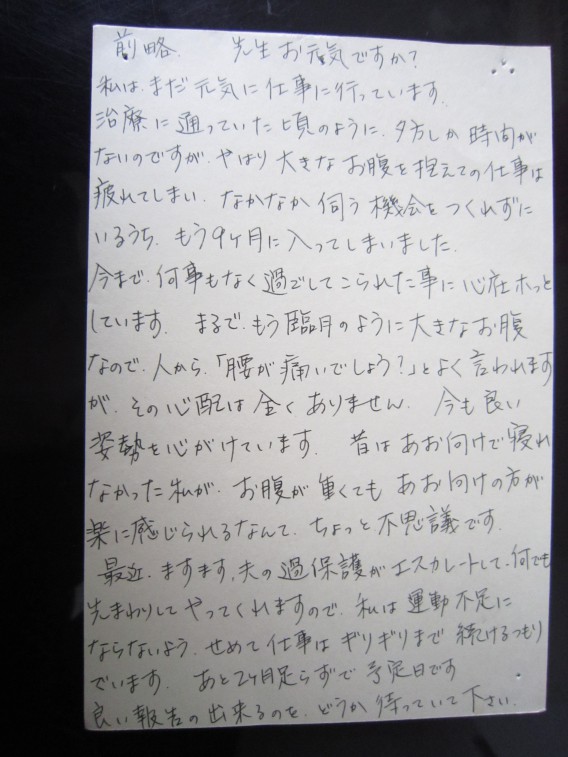 前略. 先生お元気ですか?
私は、まだ元気に仕事に行っています.
治療に通っていた頃のように、夕方しか時間が
ないのですが、やはり大きなお腹を抱えての仕事は
疲れてしまい、なかなか伺う機会をつくれずに
いるうち、もう9ヶ月に入ってしまいました.
今まで、何事もなく過ごしてこられた事に心在ホッと
しています. まるで、もう臨月のように大きなお腹
なので、人から、「腰が痛いでしょう?」とよく言われます
が、その心配は全くありません. 今も良い
姿勢を心がけています. 昔はあお向けで寝れ
なかった私が、お腹が重くてもあお向けの方が
楽に感じられるなんて、ちょっと不思議です.
最近、ますます、夫の過保護がエスカレートして、何でも
先まわりしてやってくれますので、私は運動不足に
ならないよう、せめて仕事はギリギリまで続けるつもり
でいます. あと2ヶ月足らずで予定日です
良い報告の出来るのを、どうか待っていて下さい.